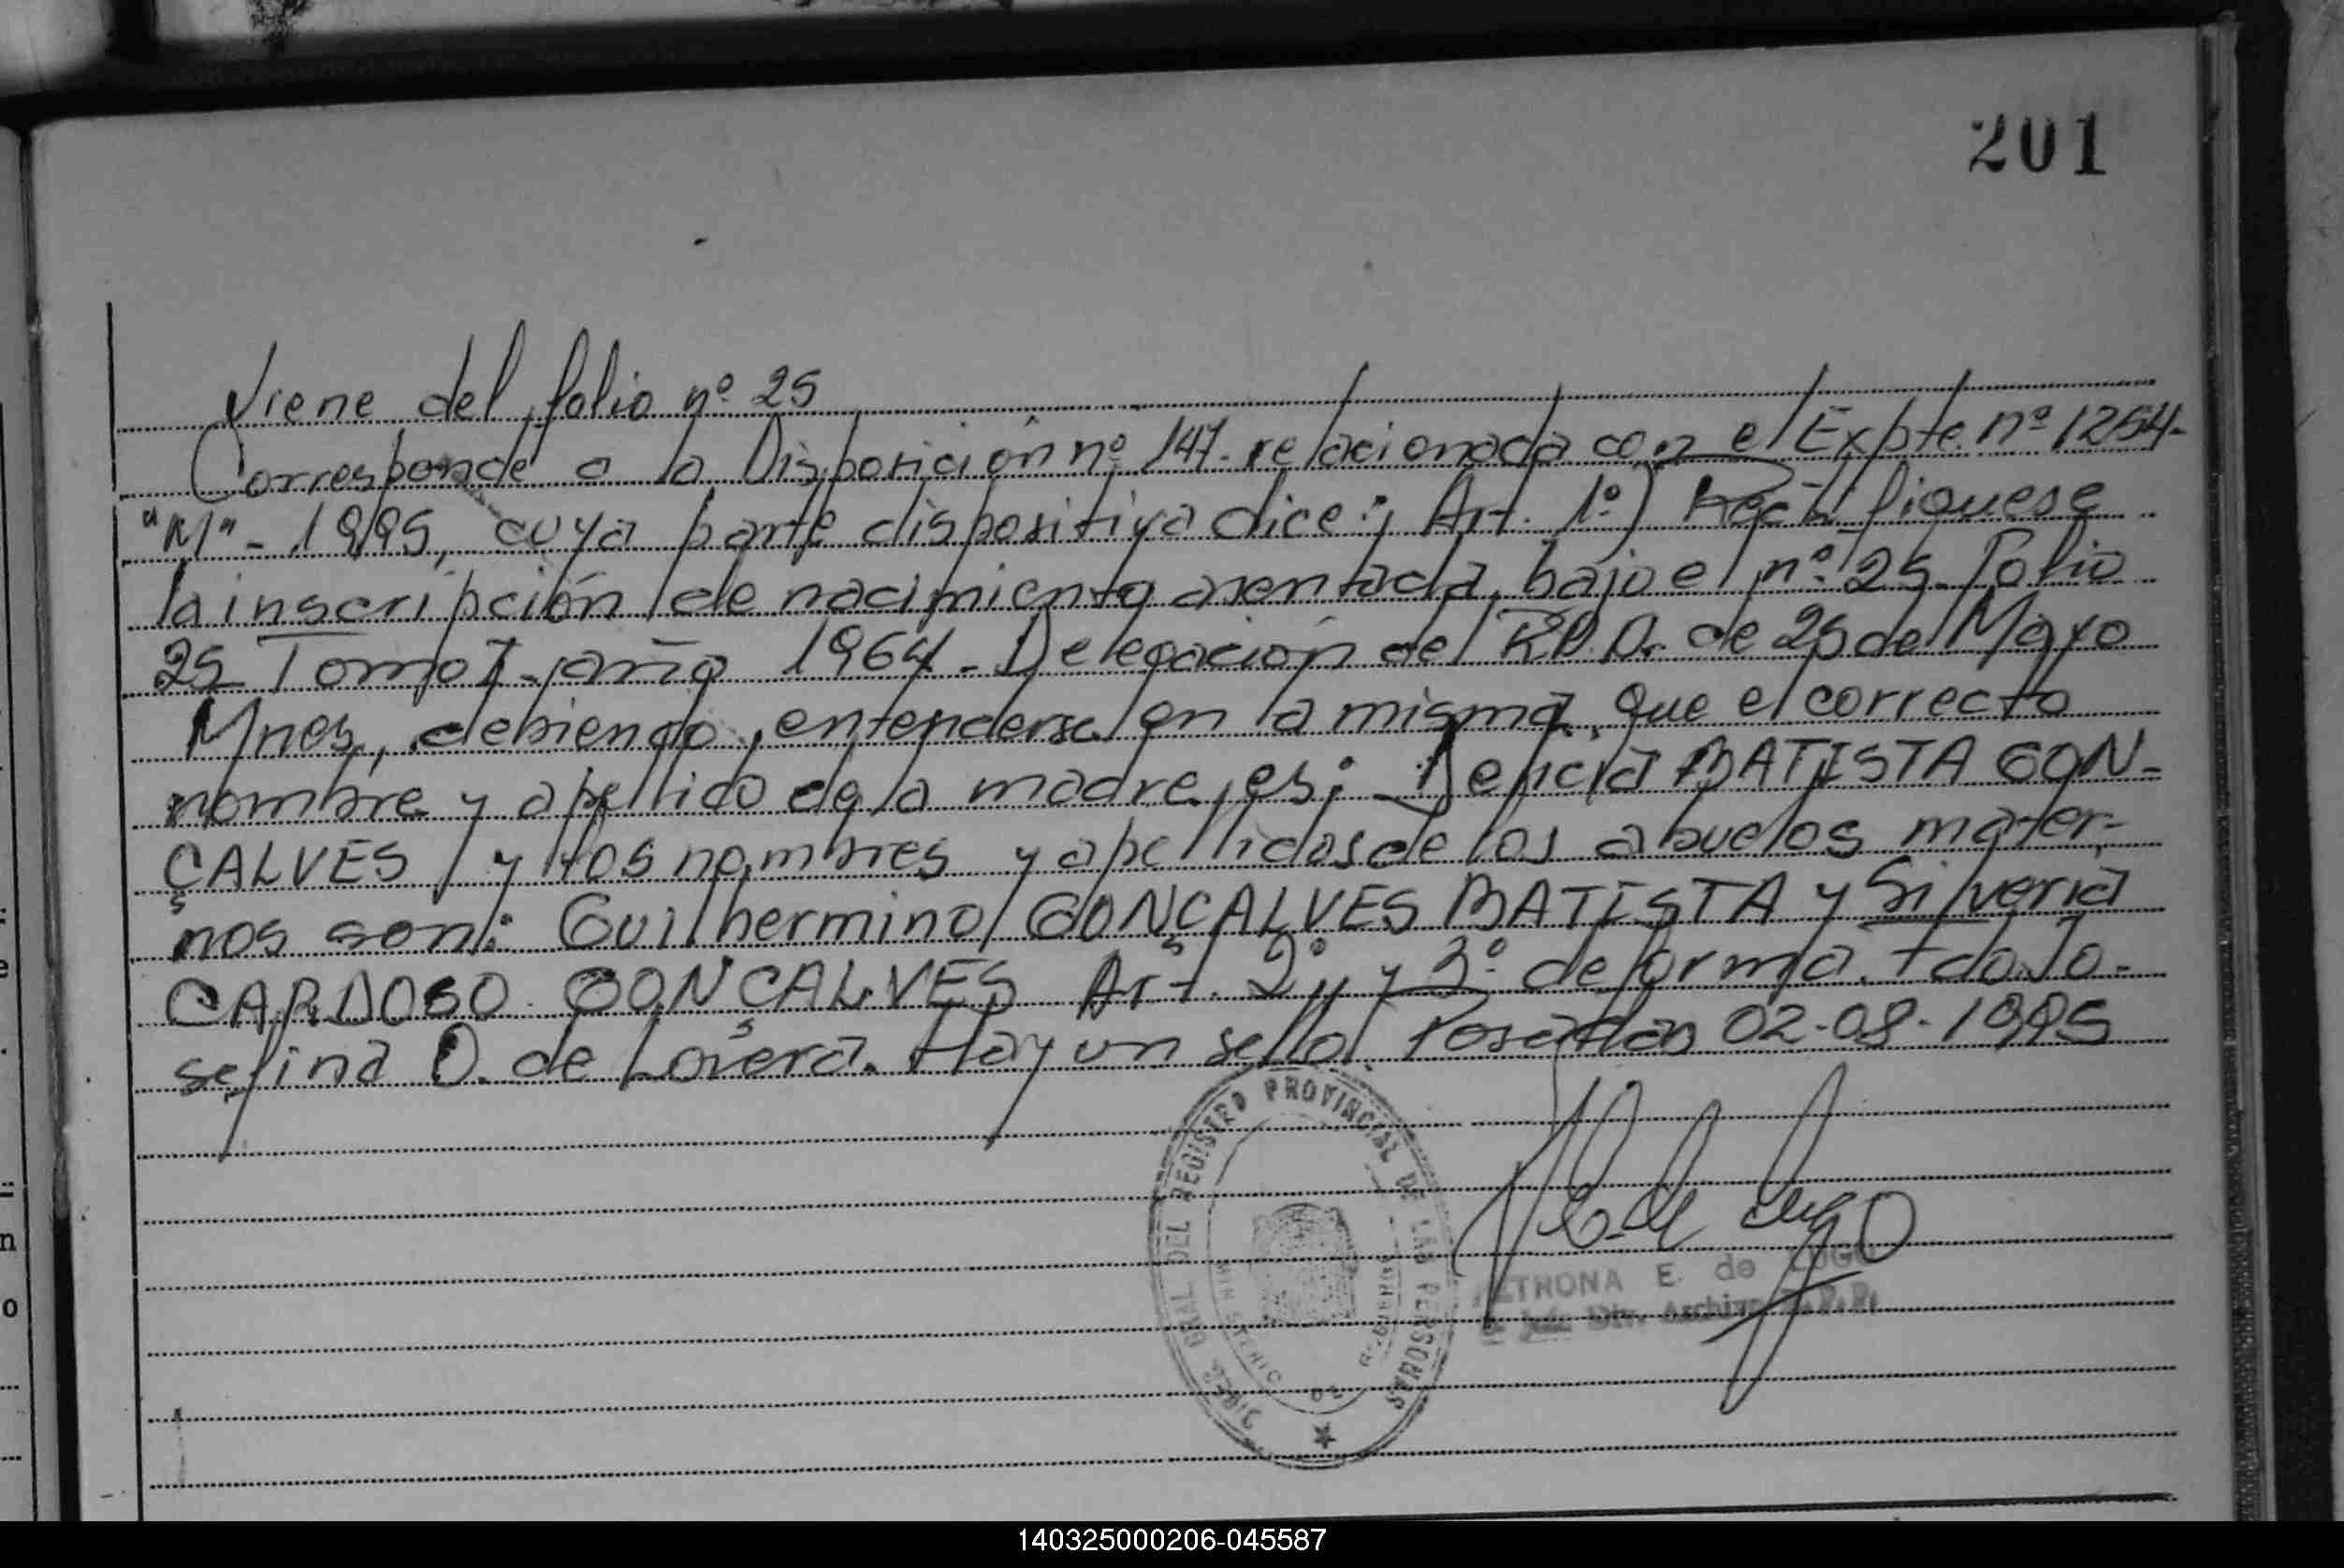 201
Viene del folio nº 25
Corresponde a la Disposición nº 147- relacionada con el Expte. nº 1254-
"M" - 1995, cuya parte dispositiva dice: Art. 1º) Rectifiquese
la inscripción de nacimiento asentada bajo el nº 25- Folio
25 Tomo I - año 1964 - Delegación del R.P.P. de 25 de Mayo
Mnes, debiendo entenderse en la misma que el correcto
nombre y apellido de la madre es: BATISTA GON-
ÇALVES y los nombres y apellidos de los abuelos mater-
nos son: Guilhermino GONÇALVES BATISTA y Silveria
CARDOSO GONÇALVES Art. 2º y 3º de forma. Fdo. Jo-
sefina O. de Lovera. Hay un sello Posadas 02-08-1995
GRAL DEL REGISTRO PROVINCIAL DE LAS PERSONAS
PETRONA E. de LUGO
Jefe Div. Archivo R.P.P.
140325000206-045587